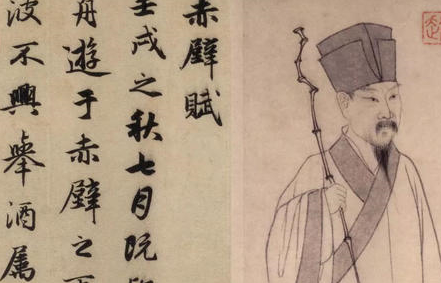 赤壁賦
壬戌之秋七月既
舟遊于赤壁之下
波不興舉酒屬